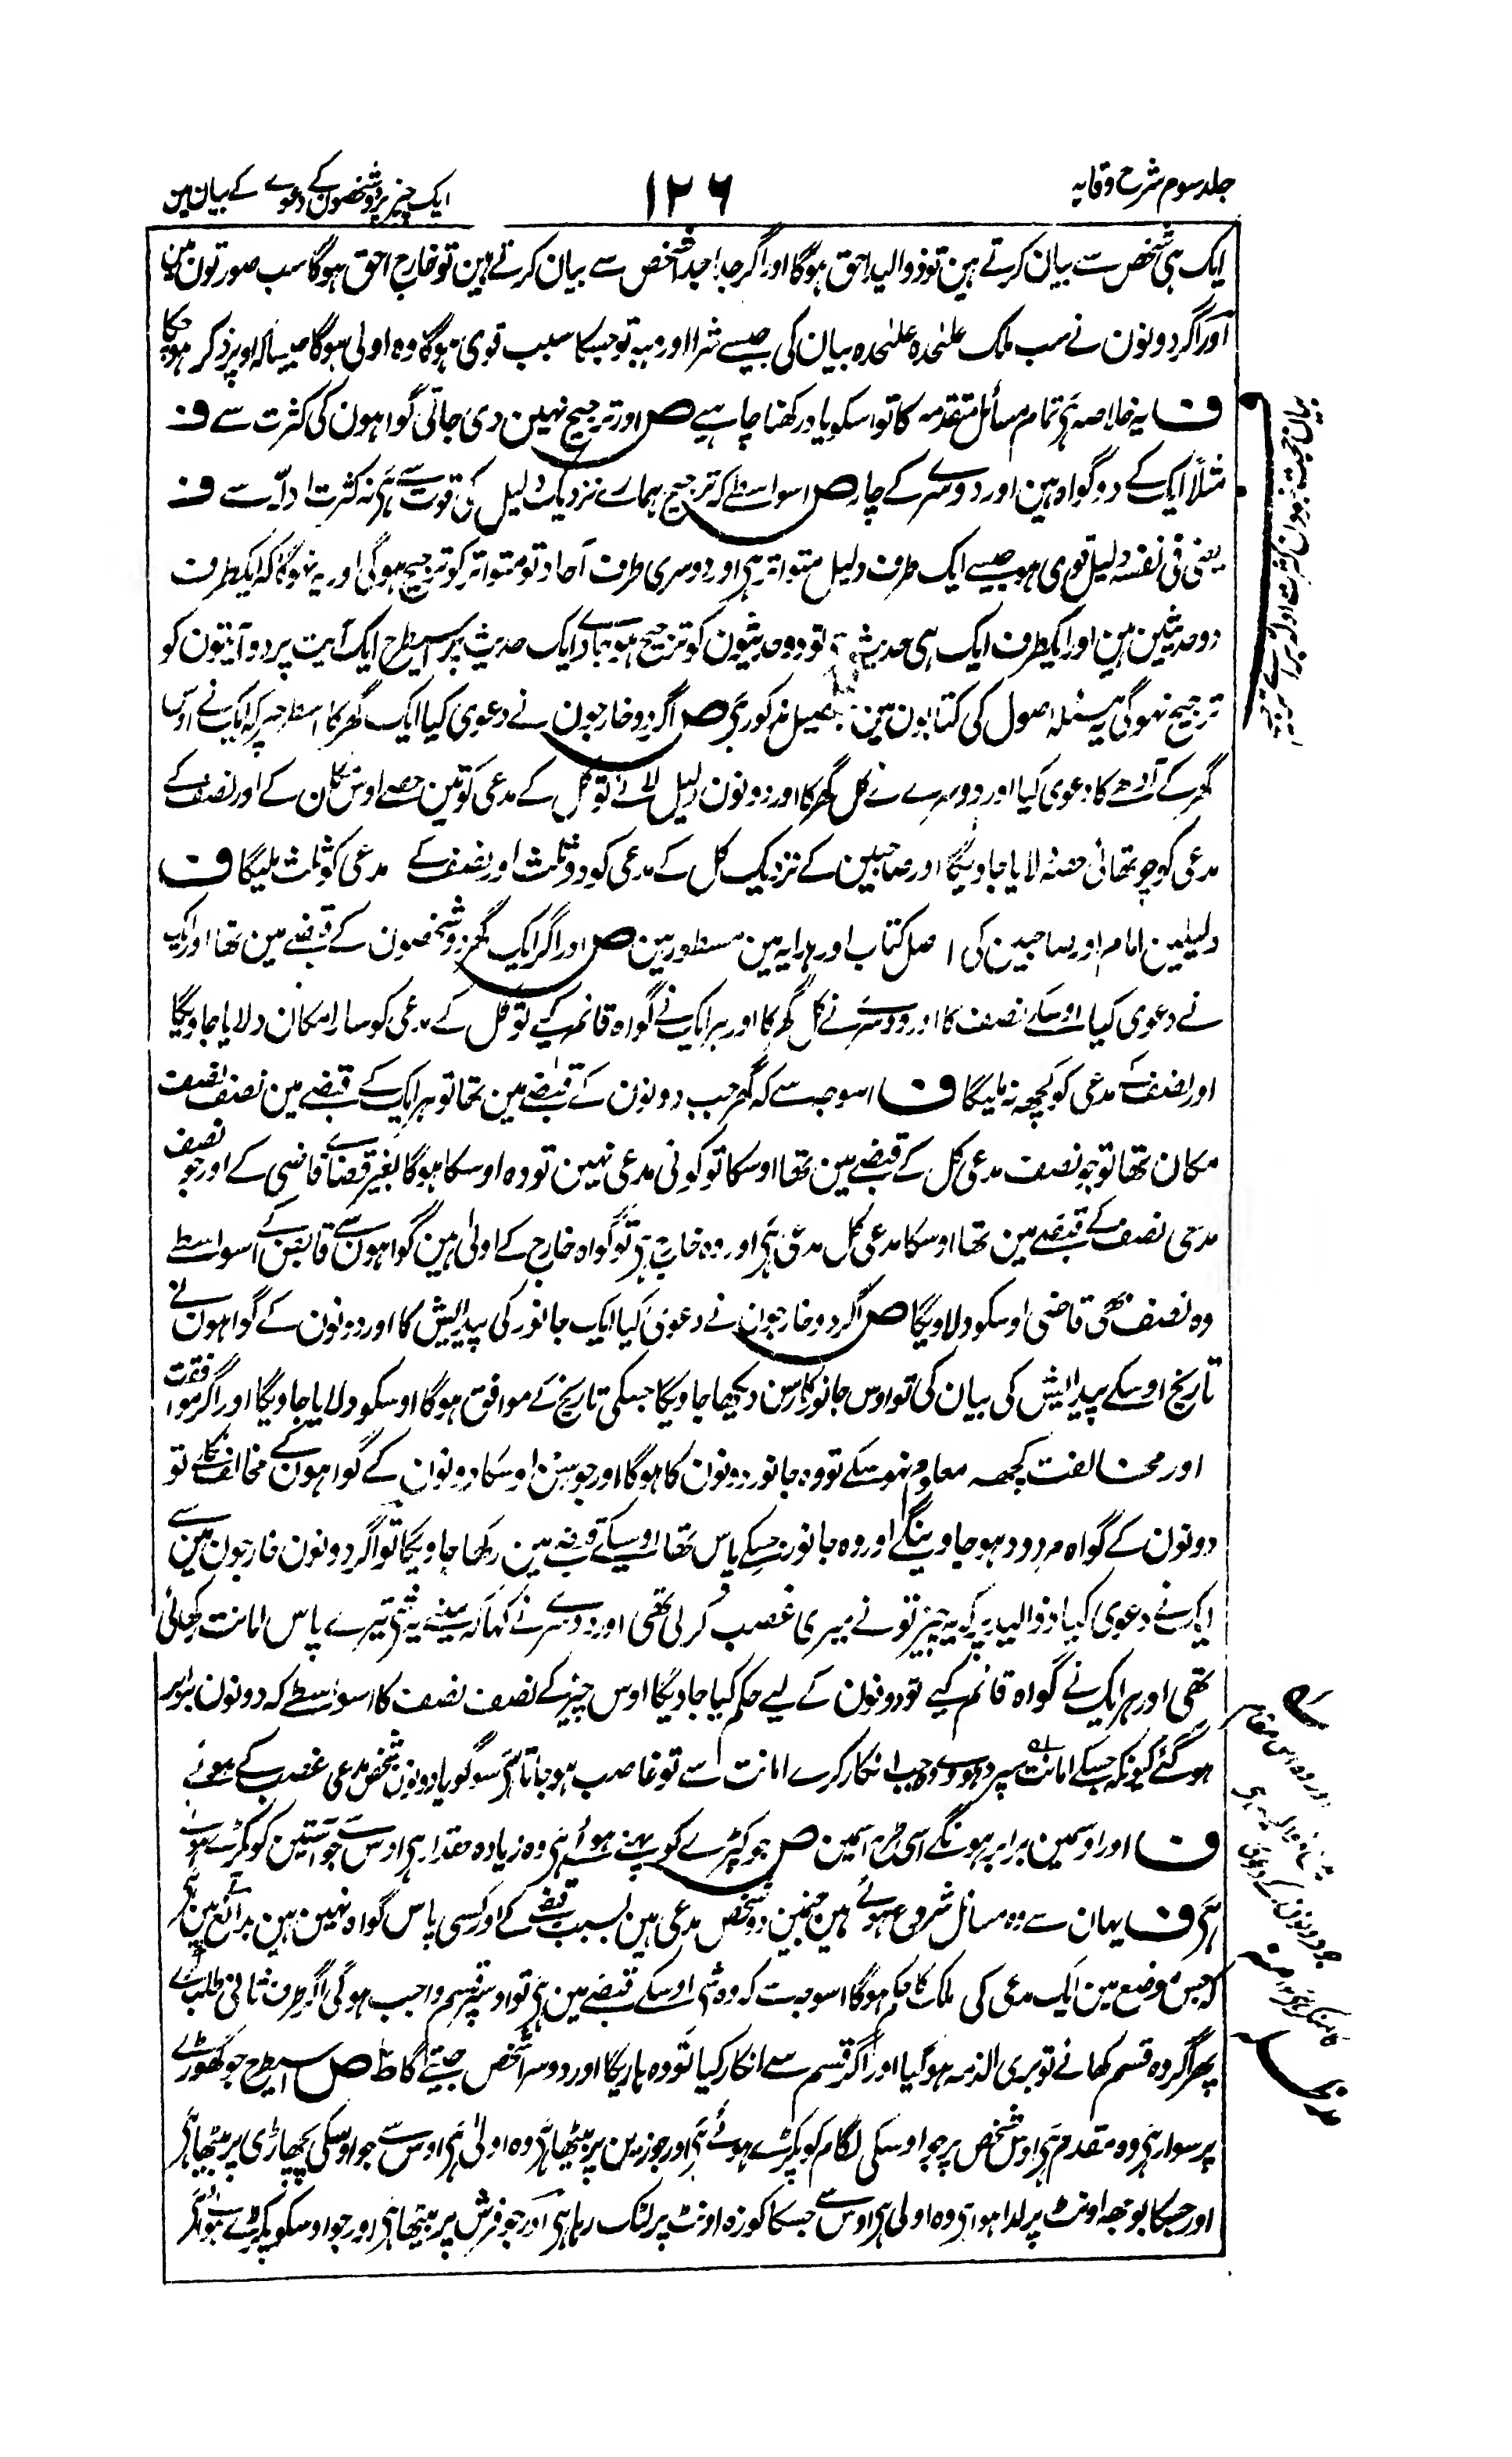 جلد سوم شرح وقایہ
۱۲۶
ایک چیز پر دو شخصون کے دعوے کے بیان مین
ایک ہی شخص سے بیان کرتے ہین تو ذوالید احق ہوگا اور اگر جدا جدا شخص سے بیان کرتے ہین تو خارج احق ہوگا سب صورتون مین
اور اگر دونون نے سبب ملک علٰحدہ علٰحدہ بیان کی جیسے شرا اور ہبہ تو جسکا سبب قوی ہوگا وہ اولی ہوگا جیسا کہ اوپر ذکر ہو چکا
ف یہ خلاصہ ہی تمام مسائل متقدمہ کا تو اسکو یاد رکھنا چاہیے ص اور ترجیح نہین دی جاتی گواہون کی کثرت سے ف
مثلاً ایک کے دو گواہ ہین اور دوسرے کے چار ص اسواسطے کہ ترجیح ہمارے نزدیک دلیل کی قوت سے ہی نہ کثرت ادلہ سے ف
یعنی فی نفسہ دلیل قوی ہو جیسے ایک طرف دلیل متواتر ہی اور دوسری طرف آحاد تو متواتر کو ترجیح ہوگی اور یہ نہوگا کہ ایکطرف
دو حدیثین ہین اور ایکطرف ایک ہی حدیث تو دو حدیثون کو ترجیح ہو جاوے ایک حدیث پر اسیطرح ایک آیت پر دو آیتون کو
ترجیح نہوگی یہ مسئلہ اصول کی کتابون مین بتفصیل مذکور ہی ص اگر دو خارجون نے دعوی کیا ایک گھر کا اسطرحپر کہ ایک نے اوس
گھر کے آدھے کا دعوی کیا اور دوسرے نے کل گھر کا اور دونون دلیل لائے تو کل کے مدعی کو تین حصے اوس مکان کے اور نصف کے
مدعی کو چوتھائی حصہ دلایا جاویگا اور صاحبین کے نزدیک کل کے مدعی کو دو ثلث اور نصف کے مدعی کو ثلث ملیگا ف
دلیلین امام اور صاحبین کی اصل کتاب اور ہدایہ مین مسطور ہین ص اور اگر ایک گھر دو شخصون کے قبضے مین تھا اور ایک
نے دعوی کیا اوسکے نصف کا اور دوسرے نے کل گھر کا اور ہر ایک نے گواہ قائم کیے تو کل کے مدعی کو سارا مکان دلایا جاویگا
اور نصف کے مدعی کو کچھ نہ ملیگا ف اسوجہ سے کہ گھر جب دونون کے قبضے مین تھا تو ہر ایک کے قبضے مین نصف نصف
مکان تھا تو جو نصف مدعی کل کے قبضے مین تھا اوسکا تو کوئی مدعی نہین تو وہ اوسکا ہوگا بغیر قضاے قاضی کے اور جو نصف
مدعی نصف کے قبضے مین تھا اوسکا مدعی کل مدعی ہی اور وہ خارج ہی تو گواہ خارج کے اولی ہین گواہون سے قابض کے اسواسطے
وہ نصف بھی قاضی اوسکو دلاویگا ص اگر دو خارجون نے دعوی کیا ایک جانور کی پیدایش کا اور دونون کے گواہون نے
تاریخ اوسکے پیدایش کی بیان کی تو اوس جانور کا سن دیکھا جاویگا جسکی تاریخ کے موافق ہوگا اوسکو دلایا جاویگا اور اگر موافقت
اور مخالفت کچھ معلوم نہوسکے تو وہ جانور دونون کا ہوگا اور جو سن اوسکا دونون کے گواہون کے مخالف نکلے تو
دونون کے گواہ مردود ہو جاوینگے اور وہ جانور جسکے پاس تھا اوسیکے قبضے مین رکھا جاویگا تو اگر دونون خارجون مین سے
ایک نے دعوی کیا ذوالید پر کہ یہ چیز تو نے میری غصب کر لی تھی اور دوسرے نے کہا کہ مینے یہ شی تیرے پاس امانت رکھائی
تھی اور ہر ایک نے گواہ قائم کیے تو دونون کے لیے حکم کیا جاویگا اوس چیز کے نصف نصف کا اسواسطے کہ دونون برابر
ہوگئے کیونکہ جسکے امانت سپرد ہووے وہ جب انکار کرے امانت سے تو غاصب ہو جاتا ہی سو گویا دونون شخص مدعی غصب کے ہوئے
ف اور اوسمین برابر ہونگے اسی طرح اسمین ص جو کپڑے کو پہنے ہوئے ہی وہ زیادہ حقدار ہی اوس سے جو آستین کو پکڑے ہوے
ہی ف یہان سے وہ مسائل شروع ہوئے ہین جنمین دو شخص مدعی ہین بسبب قبضے کے اور کسی پاس گواہ نہین ہین بدائع مین ہی
کہ جس موضع مین ایک مدعی کی ملک کا حکم ہوگا اسوجہ سے کہ وہ شی اوسکے قبضے مین ہی تو اوسپر قسم واجب ہوگی اگر طرف ثانی طلب کرے
پھر اگر وہ قسم کھانے تو بری الذمہ ہوگیا اور اگر قسم سے انکار کیا تو وہ ہاریگا اور دوسرا شخص جیتے گا ط ص اسیطرح جو گھوڑے
پر سوار ہی وہ مقدم ہی اوس شخص پر جو اوسکی لگام کو پکڑے ہوئے ہی اور جو زین پر بیٹھا ہی وہ اولی ہی اوس سے جو اوسکی پچھاڑی پر بیٹھا ہی
اور جسکا بوجھ اونٹ پر لدا ہوا ہی وہ اولی ہی اوس سے جسکا کوزہ اونٹ پر لٹک رہا ہی اور جو فرش پر بیٹھا ہی اور جو اوسکو پکڑے ہوئے ہی